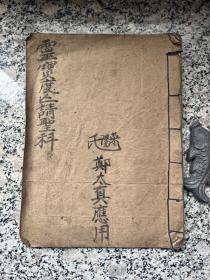 靈寶度亡請聖科
氏
鄭太真應用